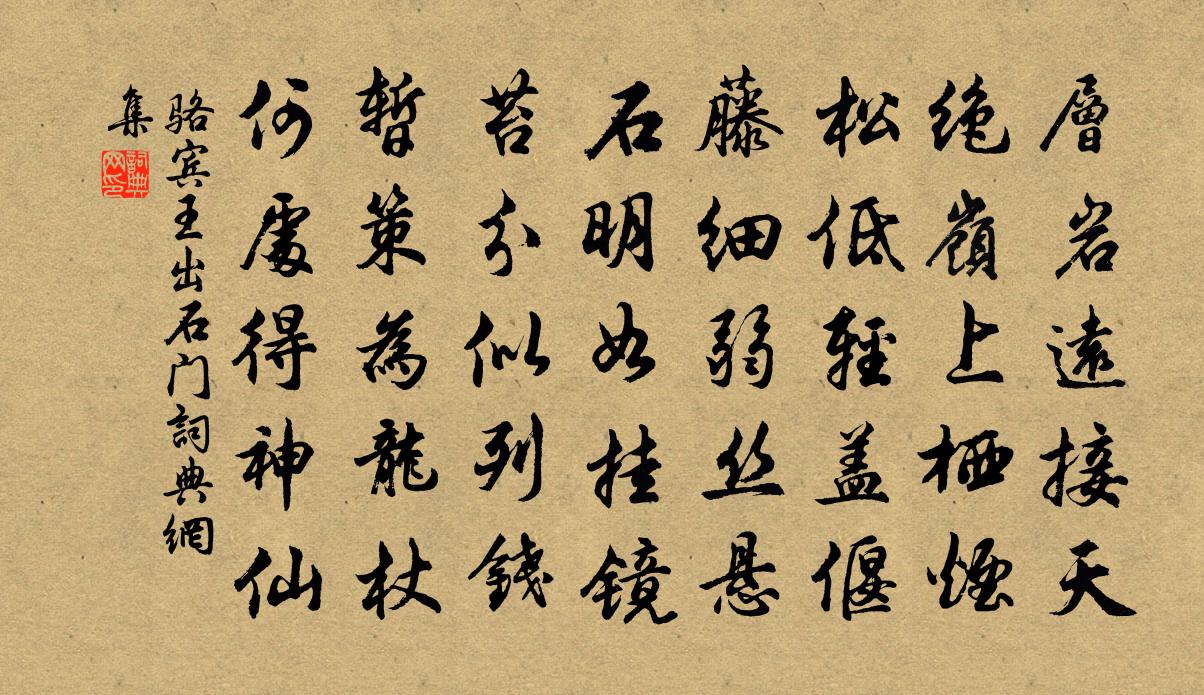 層岩遠接天
绝嶺上栖煙
松低輕盖偃
藤细弱丝懸
石明如挂镜
苔分似列錢
暫策為龍杖
何處得神仙
骆宾王出石门詞典網
集
詞典网印